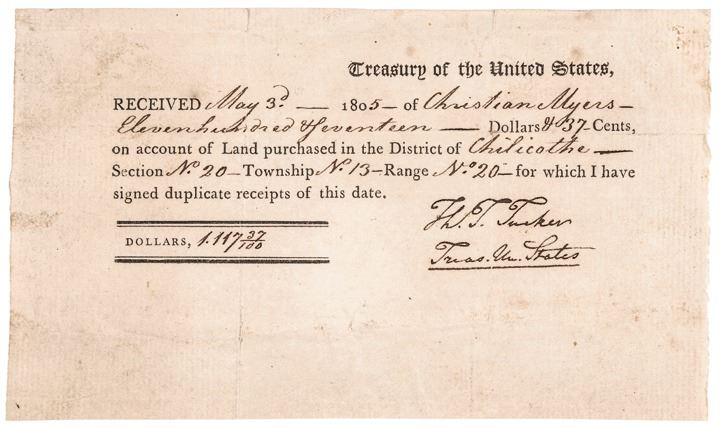 Treasury of the United States,
RECEIVED May 3d. — 1805 — of Christian Myers —
Elevenhundred & Seventeen — Dollars & 37 - Cents,
on account of Land purchased in the District of Chilicothe —
Section No. 20 — Township No. 13 — Range No. 20 — for which I have
signed duplicate receipts of this date.
DOLLARS, 1.117 37/100
Th. T. Tucker
Treas. Un. States